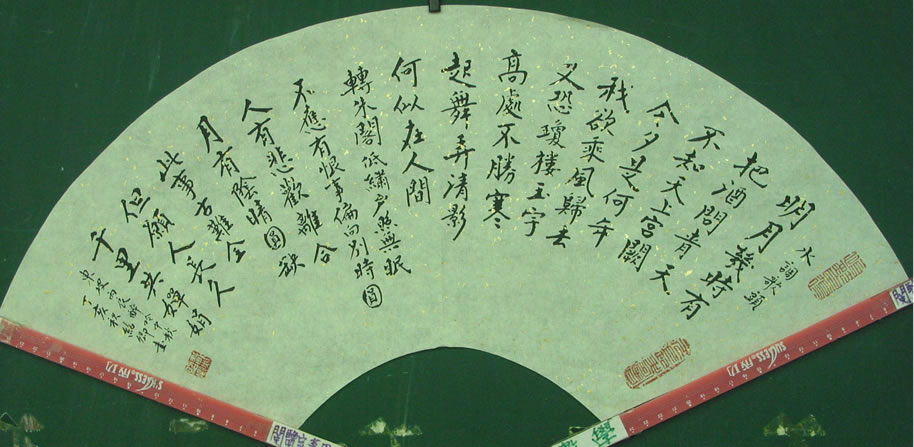 水調歌頭
明月幾時有
把酒問青天
不知天上宮闕
今夕是何年
我欲乘風歸去
又恐瓊樓玉宇
高處不勝寒
起舞弄清影
何似在人間
轉朱閣低繡戶照無眠
不應有恨事偏向別時圓
人有悲歡離合
月有陰晴圓缺
此事古難全
但願人長久
千里共嬋娟
東坡丙辰醉吟中秋
丁亥秋
SUCCESS
SUCCESS
學